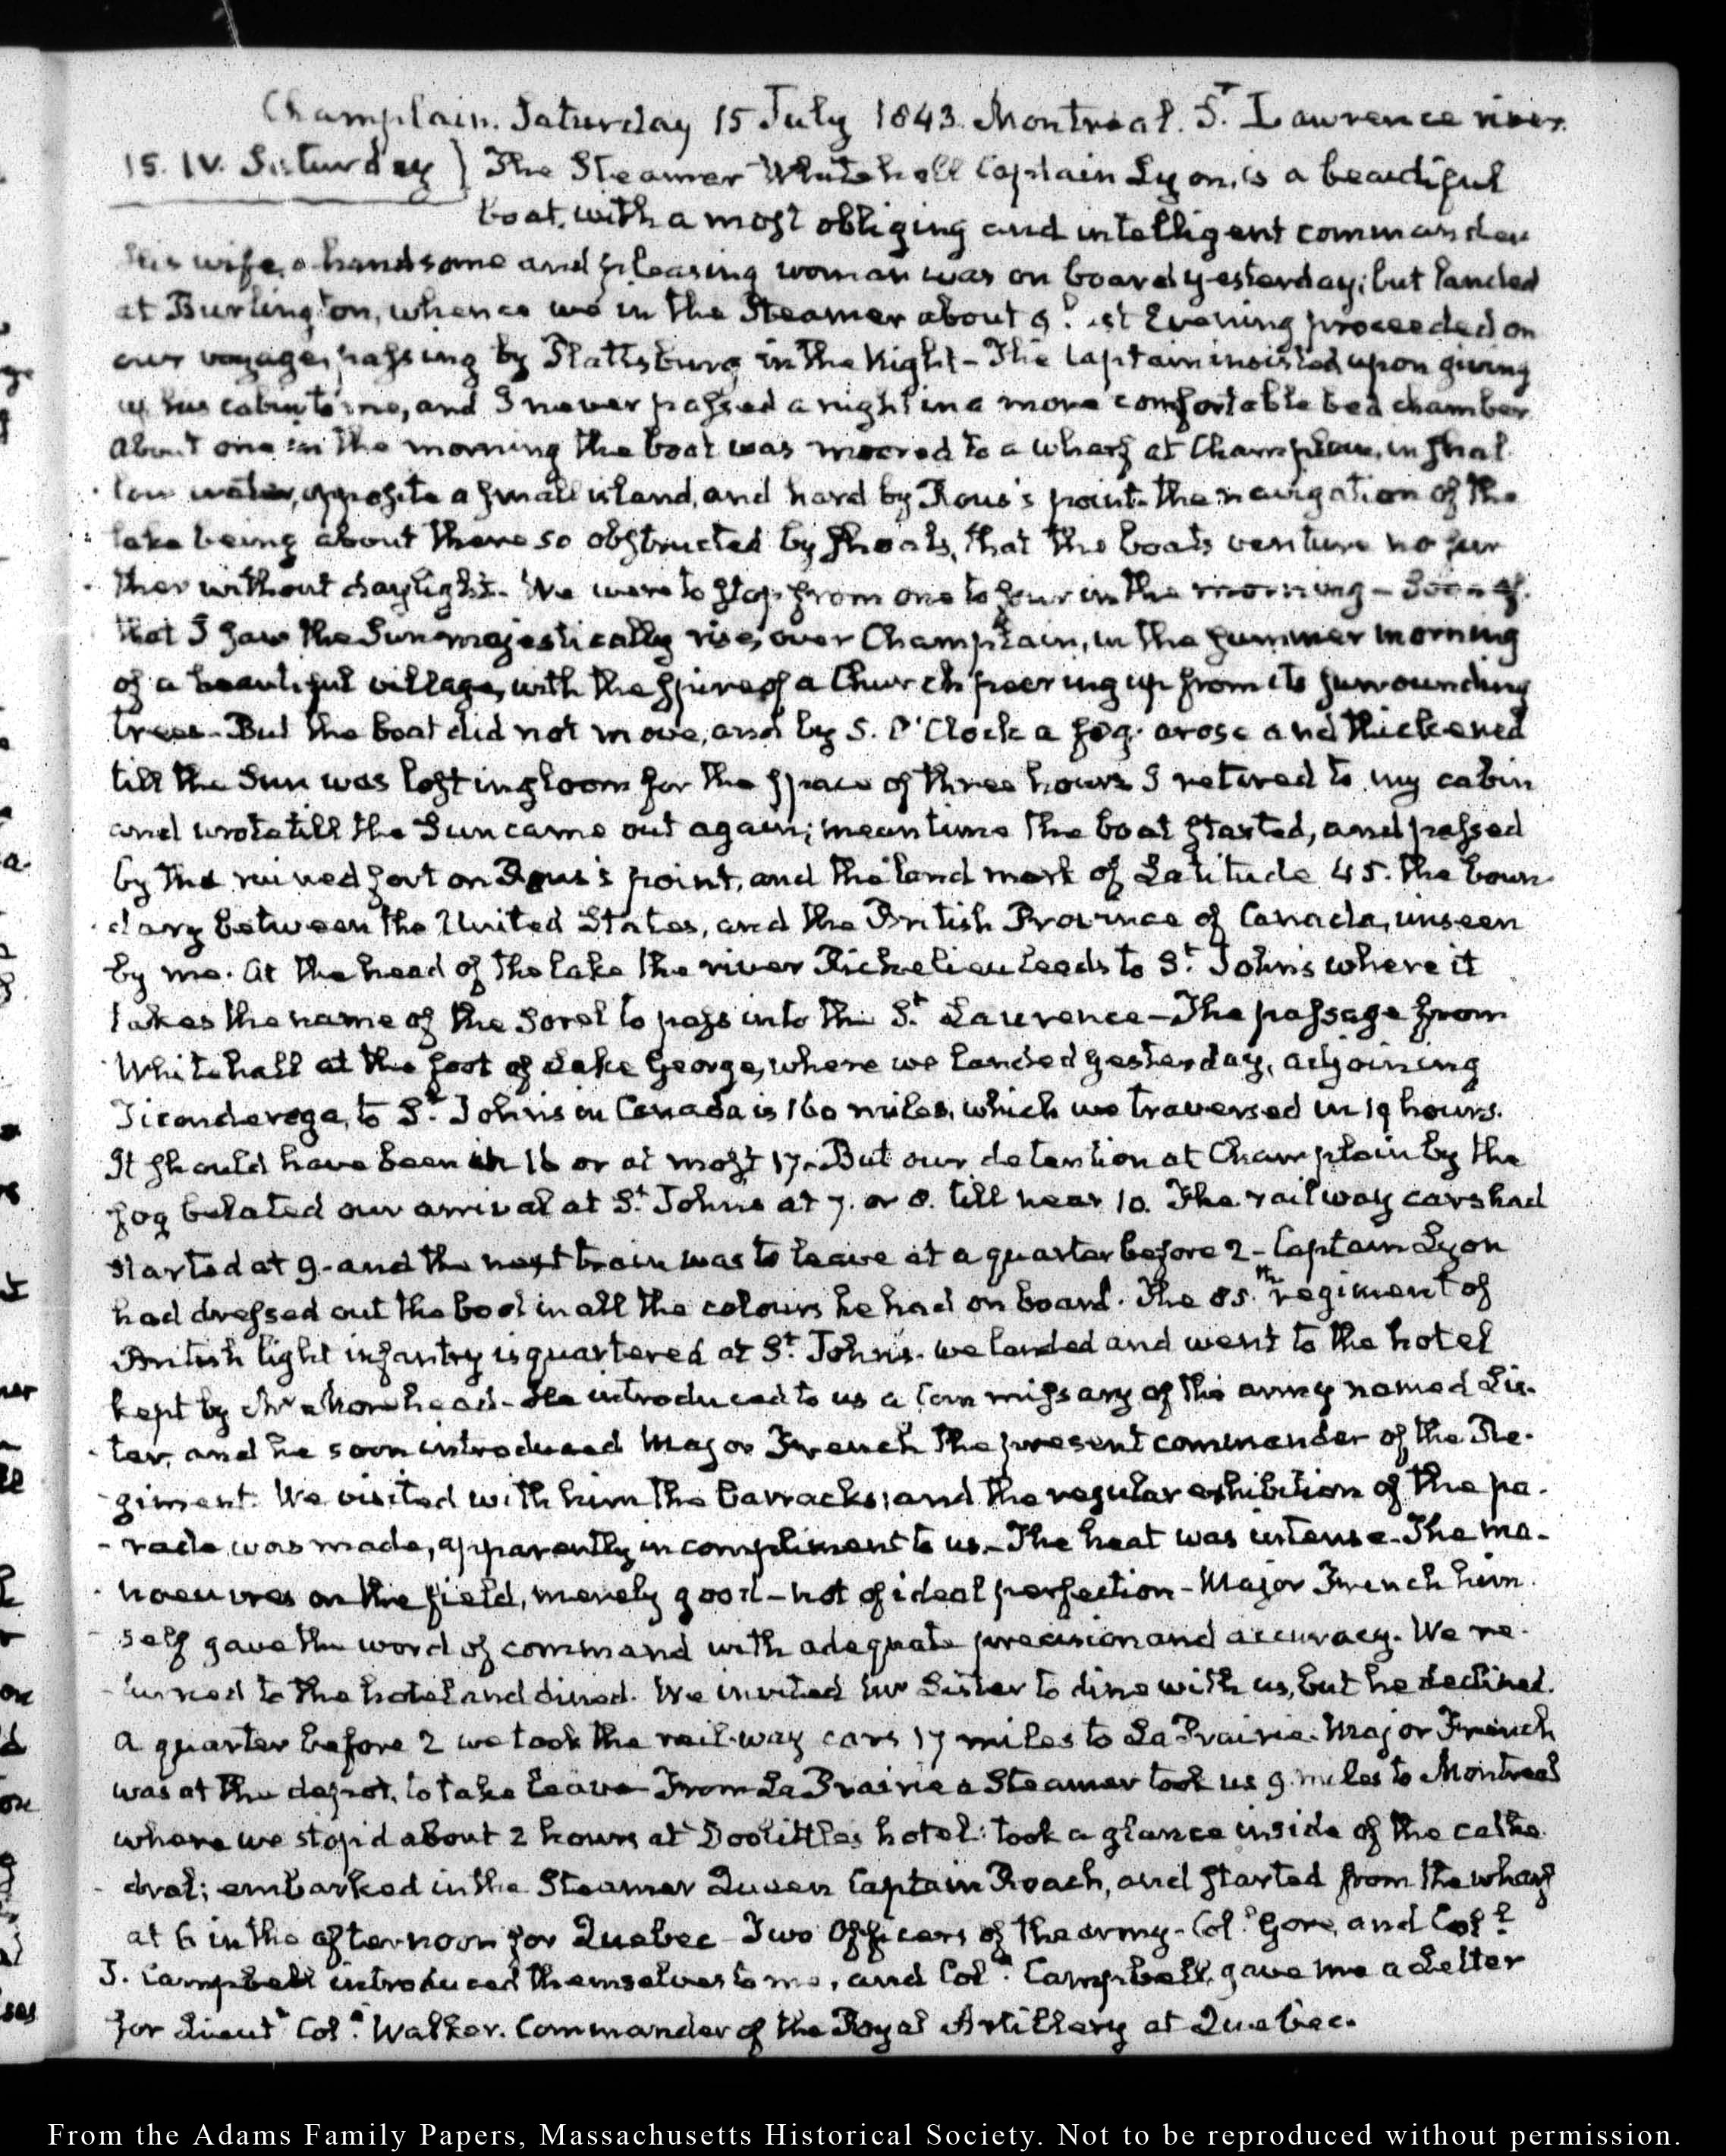 Champlain. Saturday 15 July 1843. Montreal. St. Lawrence river.
15. IV. Saturday } The Steamer Whitehall Captain Lyon, is a beautiful
boat, with a most obliging and intelligent commander
His wife, a handsome and pleasing woman was on board yesterday; but landed
at Burlington, whence we in the Steamer about Evening proceeded on
our voyage, passing by Plattsburg in the Night – The Captain insisted upon giving
up his cabin to me, and I never passed a night in a more comfortable bed chamber
About one in the morning the boat was moored to a wharf at Champlain, in shal-
low water, opposite a small island, and hard by Rous's point. the navigation of the
lake being about there so obstructed by shoals, that the boats venture no fur
ther without daylight. We were to stop from one to four in the morning – Soon af.
that I saw the Sun majestically rise, over Champlain, in the summer morning
of a beautiful village, with the spire of a Church peering up from its surrounding
trees – But the boat did not move, and by 5. O'Clock a fog arose and thickened
till the Sun was lost in gloom for the space of three hours I retired to my cabin
and wrote till the Sun came out again; meantime the boat started, and passed
by the ruined fort on Rous's point, and the land mark of Latitude 45. the boun-
dary between the United States, and the British Province of Canada, unseen
by me. At the head of the lake the river Richelieu leads to St. Johns where it
takes the name of the Sorel to pass into the St. Laurence – The passage from
Whitehall at the foot of Lake George, where we landed yesterday, adjoining
Ticonderoga, to St. Johns in Canada is 160 miles, which we traversed in 19 hours.
It should have been in 16 or at most 17. But our detention at Champlain by the
fog belated our arrival at St. Johns at 7. or 8. till near 10. The railway cars had
started at 9. and the next train was to leave at a quarter before 2 – Captain Lyon
had dressed out the boat in all the colours he had on board. The 85th. regiment of
British light infantry is quartered at St. Johns. we landed and went to the hotel
kept by Mr. Morehead – He introduced to us a Commissary of the army named Lis-
ter, and he soon introduced Major French the present commander of the Re-
giment. We visited with him the barracks; and the regular exhibition of the pa-
rade was made, apparently in compliment to us. The heat was intense – The ma-
noeuvres on the field, merely good – not of ideal perfection – Major French him
self gave the word of command with adequate precision and accuracy. We re-
turned to the hotel and dined. We invited Mr Lister to dine with us, but he declined.
A quarter before 2 we took the rail-way cars 17 miles to La Prairie. Major French
was at the depot, to take leave – From La Prairie a Steamer took us 9 miles to Montreal
where we stop'd about 2 hours at Doolittles hotel: took a glance inside of the cathe
dral; embarked in the Steamer Queen Captain Roach, and started from the wharf
at 6 in the afternoon for Quebec – Two Officers of the army – Coll. Gore, and Coll.
J. Campbell introduced themselves to me, and Coll. Campbell, gave me a Letter
for Lieutt Coll. Walker. Commander of the Royal Artillery at Quebec.
From the Adams Family Papers, Massachusetts Historical Society. Not to be reproduced without permission.